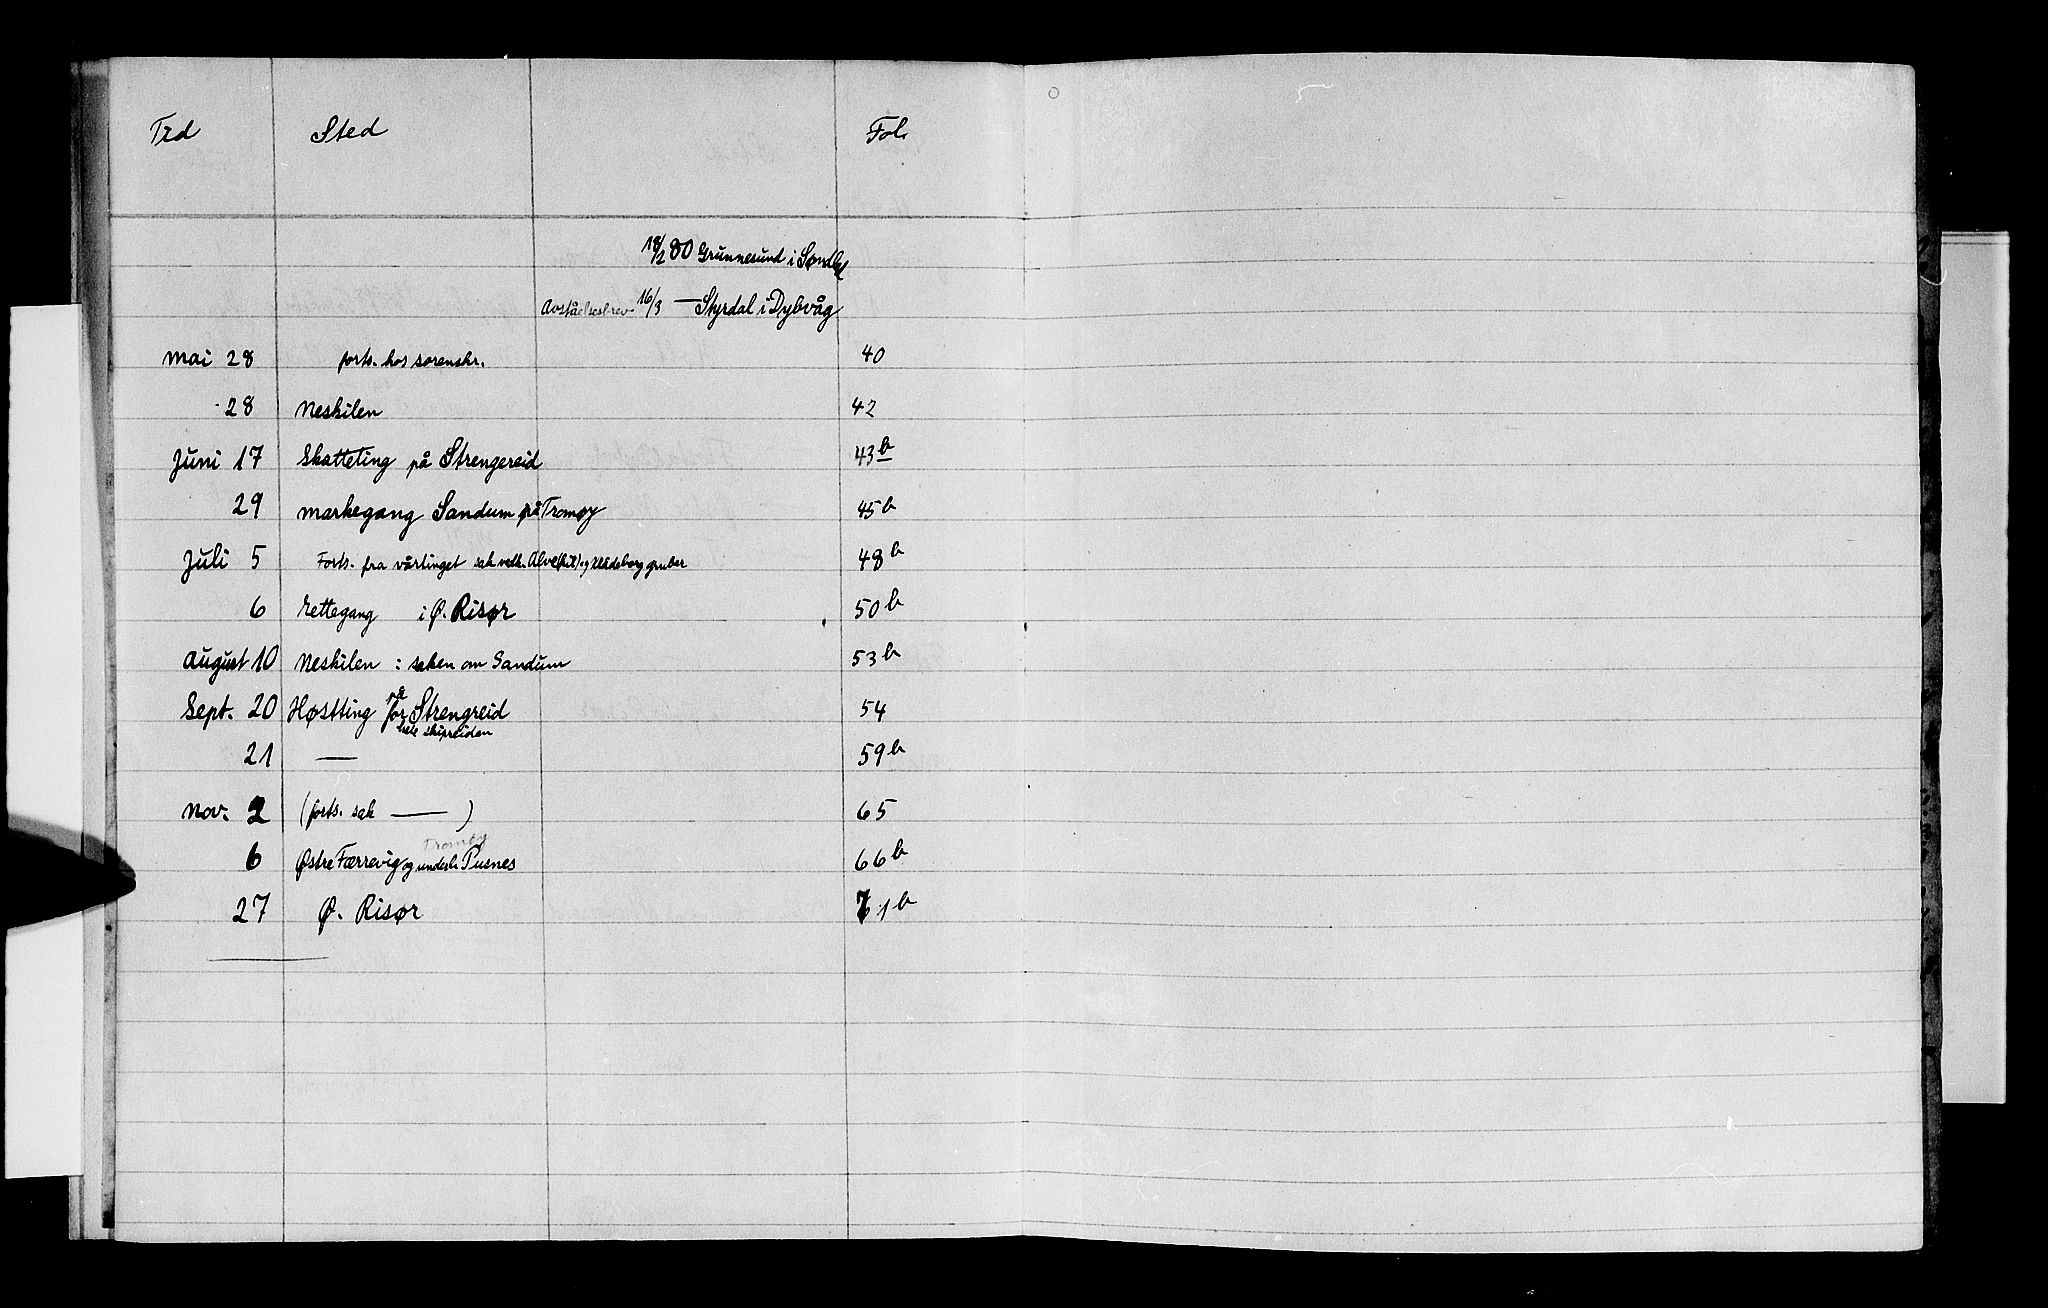 Tid Sted Fol.
18/2 80 Grunnesund i Søndel
Avståelsesbrev 16/3 — Styrdal i Dybvåg
mai 28 forts. hos sorenskr. 40
28 Neskilen 42
Juni 17 Skatteting på Strengereid 43b
29 markegang Sandum på Tromøy 45b
Juli 5 Forts. fra vårtinget sak vedk. Alve og gruber 48b
6 rettegang i Ø. Risør 50b
August 10 Neskilen : saken om Sandum 53b
Sept. 20 Høstting på Strengreid 54
for hele skipreiden
21 — 59b
Nov. 2 (forts. sak — ) 65
Tromøy
6 Østre Færrevig og underl. Pusnes 66b
27 Ø. Risør 71b